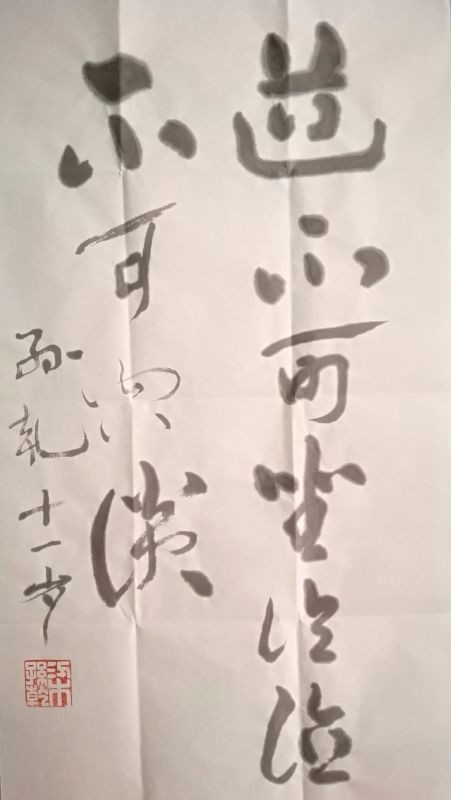 道不可坐论德
不可空谈
孙乾十一岁